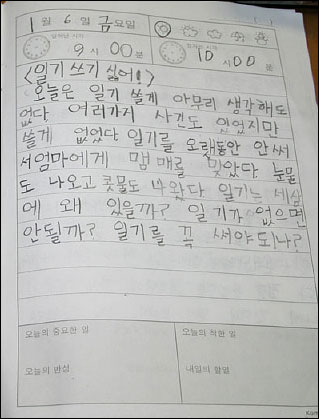 1월 6일 금요일
일어난 시각
9시 00분
잠자는 시각
10시 00분
<일기 쓰기 싫어!>
오늘은 일기 쓸게 아무리 생각해도
없다 여러가지 사건도 있었지만
쓸게 없었다 일기를 오랫동안 안써
서엄마에게 맴매를 맞았다 눈물
도 나오고 콧물도 나왔다 일기는 세상
에 왜 있을까? 일기가 없으면
안될까? 일기를 꼭 써야 되나?
오늘의 중요한 일
오늘의 착한 일
오늘의 반성
내일의 할일